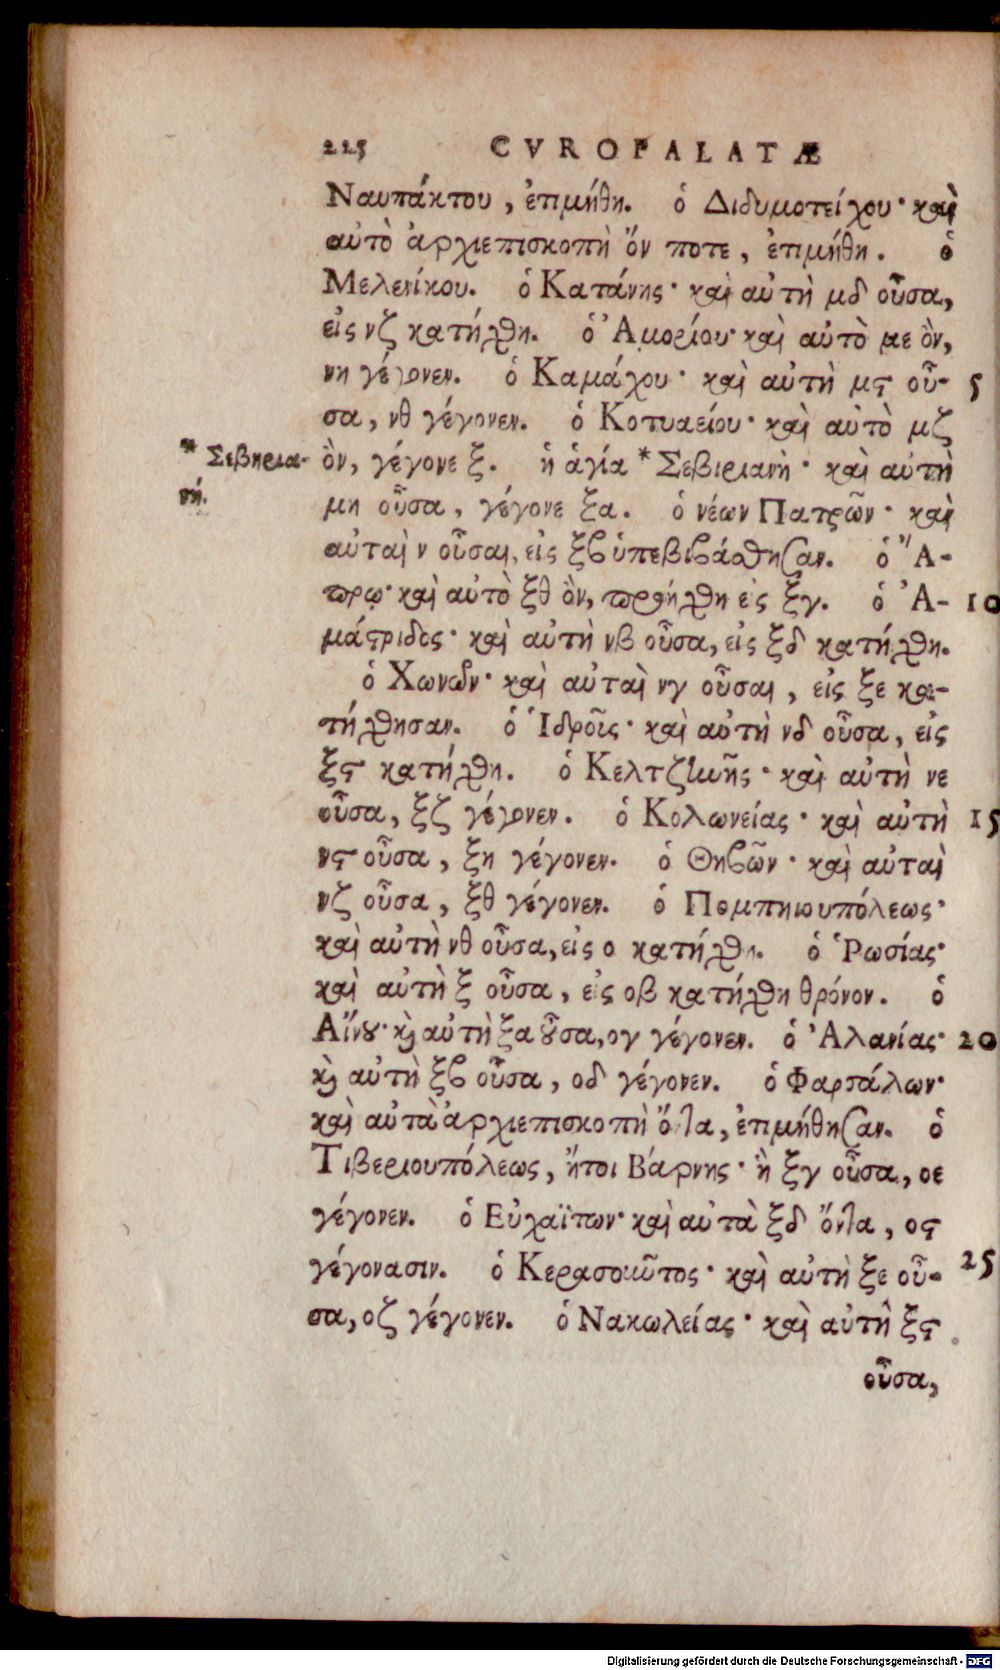 225 CVROPALATÆ
Ναυπάκτου, ἐτιμήθη. ὁ Διδυμοτείχου· καὶ
αὐτὸ ἀρχιεπισκοπὴ ὄν ποτε, ἐτιμήθη. ὁ
Μελενίκου. ὁ Κατάνης· καὶ αὐτὴ μδ οὖσα,
εἰς νζ κατήχθη. ὁ Ἀμορίου· καὶ αὐτὸ με ὂν,
νη γέγονεν. ὁ Καμάχου· καὶ αὐτὴ μϛ οὖ- 5
σα, νθ γέγονεν. ὁ Κοτυαείου· καὶ αὐτὸ μζ
* Σεβηρια- ὂν, γέγονε ξ. ἡ ἁγία * Σεβιριανὴ· καὶ αὐτὴ
νή. μη οὖσα, γέγονε ξα. ὁ νέων Πατρῶν· καὶ
αὐταὶ ν οὖσαι, εἰς ξβ ὑπεβιβάσθησαν. ὁ Ἄ-
πρῳ· καὶ αὐτὸ ξθ ὂν, προήχθη εἰς ξγ. ὁ Ἀ- 10
μάστριδος· καὶ αὐτὴ νβ οὖσα, εἰς ξδ κατήχθη.
ὁ Χωνῶν· καὶ αὐταὶ νγ οὖσαι, εἰς ξε κα-
τήχθησαν. ὁ Ἱδροῖς· καὶ αὐτὴ νδ οὖσα, εἰς
ξϛ κατήχθη. ὁ Κελτζηνῆς· καὶ αὐτὴ νε
οὖσα, ξζ γέγονεν. ὁ Κολωνείας· καὶ αὐτὴ 15
νϛ οὖσα, ξη γέγονεν. ὁ Θηβῶν· καὶ αὐταὶ
νζ οὖσα, ξθ γέγονεν. ὁ Πομπηιουπόλεως·
καὶ αὐτὴ νθ οὖσα, εἰς ο κατήχθη. ὁ Ῥωσίας·
καὶ αὐτὴ ξ οὖσα, εἰς οβ κατήχθη θρόνον. ὁ
Αἴνου· καὶ αὐτὴ ξα οὖσα, ογ γέγονεν. ὁ Ἀλανίας· 20
καὶ αὐτὴ ξβ οὖσα, οδ γέγονεν. ὁ Φαρσάλων·
καὶ αὐτὰ ἀρχιεπισκοπὴ ὄντα, ἐτιμήθησαν. ὁ
Τιβεριουπόλεως, ἤτοι Βάρνης· ἡ ξγ οὖσα, οε
γέγονεν. ὁ Εὐχαΐτων· καὶ αὐτὰ ξδ ὄντα, οϛ
γέγονασιν. ὁ Κερασοῦντος· καὶ αὐτὴ ξε οὖ- 25
σα, οζ γέγονεν. ὁ Νακωλείας· καὶ αὐτὴ ξϛ
οὖσα,
Digitalisierung gefördert durch die Deutsche Forschungsgemeinschaft - DFG